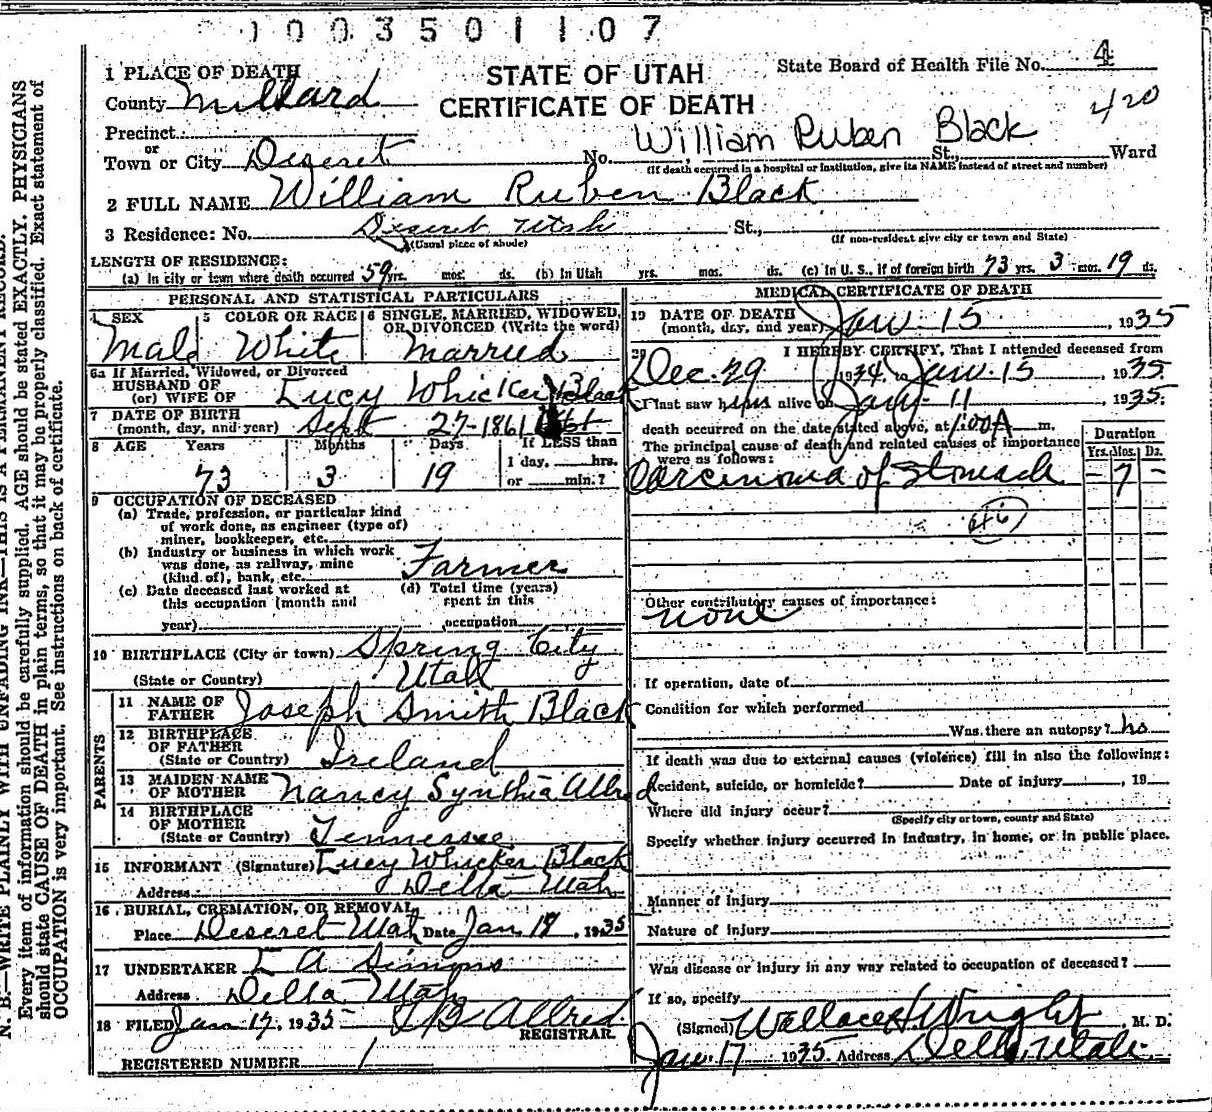 1003501107
1 PLACE OF DEATH
STATE OF UTAH
State Board of Health File No. 4
County Millard
CERTIFICATE OF DEATH
420
Precinct
or
William Ruben Black
Town or City Deseret No. St., Ward
(If death occurred in a hospital or institution, give its NAME instead of street and number)
2 FULL NAME William Ruben Black
3 Residence: No. Deseret Utah St.,
(Usual place of abode) (If non-resident give city or town and State)
LENGTH OF RESIDENCE:
(a) In city or town where death occurred 59 yrs. mos. ds. (b) In Utah yrs. mos. ds. (c) In U. S., if of foreign birth 73 yrs. 3 mos. 19 ds.
PERSONAL AND STATISTICAL PARTICULARS
4 SEX 5 COLOR OR RACE 6 SINGLE, MARRIED, WIDOWED,
OR DIVORCED (Write the word)
Male White Married
6a If Married, Widowed, or Divorced
HUSBAND OF
(or) WIFE OF Lucy Whicker Black
7 DATE OF BIRTH
(month, day, and year) Sept 27-1861
8 AGE Years Months Days If LESS than
1 day, hrs.
73 3 19 or min.?
9 OCCUPATION OF DECEASED
(a) Trade, profession, or particular kind
of work done, as engineer (type of)
miner, bookkeeper, etc.
(b) Industry or business in which work
was done, as railway, mine
(kind of), bank, etc. Farmer
(c) Date deceased last worked at (d) Total time (years)
this occupation (month and spent in this
year) occupation
10 BIRTHPLACE (City or town) Spring City
(State or Country) Utah
PARENTS
11 NAME OF
FATHER Joseph Smith Black
12 BIRTHPLACE
OF FATHER
(State or Country) Ireland
13 MAIDEN NAME
OF MOTHER Nancy Synthia Allred
14 BIRTHPLACE
OF MOTHER
(State or Country) Tennessee
15 INFORMANT (Signature) Lucy Whicker Black
Address Delta Utah
16 BURIAL, CREMATION, OR REMOVAL
Place Deseret Utah Date Jan. , 1935
17 UNDERTAKER
Address Delta Utah
18 FILED Jan 17, 1935 Allred
REGISTRAR
REGISTERED NUMBER 1
MEDICAL CERTIFICATE OF DEATH
19 DATE OF DEATH
(month, day, and year) Jan 15, 1935
20 I HEREBY CERTIFY, That I attended deceased from
Dec. 29 1934, to Jan. 15, 1935
I last saw him alive on Jan - 11, 1935;
death occurred on the date stated above, at 1:00A m.
The principal cause of death and related causes of importance
were as follows:
Duration
Yrs. Mos. Ds.
Carcinoma of Stomach - 7 -
46
Other contributory causes of importance:
none
If operation, date of
Condition for which performed
Was there an autopsy? no
If death was due to external causes (violence) fill in also the following:
Accident, suicide, or homicide? Date of injury , 19
Where did injury occur?
(Specify city or town, county and State)
Specify whether injury occurred in industry, in home, or in public place.
Manner of injury
Nature of injury
Was disease or injury in any way related to occupation of deceased?
If so, specify
(Signed) Wallace H Wright M. D.
Jan. 17 1935 Address Delta, Utah.
N. B.—WRITE PLAINLY WITH UNFADING INK—THIS IS A PERMANENT RECORD.
Every item of information should be carefully supplied. AGE should be stated EXACTLY. PHYSICIANS
should state CAUSE OF DEATH in plain terms, so that it may be properly classified. Exact statement of
OCCUPATION is very important. See instructions on back of certificate.